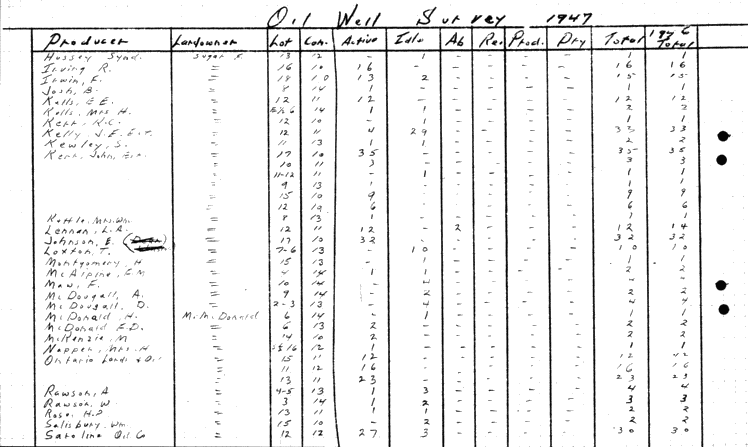 Oil Well Survey 1947
Producer Landowner Lot Con. Active Idle Ab Re. Prod. Dry Total 1946 Total
Hussey Synd. Sugar E. 13 12 - 1 - - - - 1 1
Irving R. " 16 10 16 - - - - 16 16
Irwin, F. " 18 10 13 2 - - - - 15 15
Josh, B. " 8 14 1 - - - - 1 1
Kells, E E. " 12 11 12 - - - - 12 12
Kells, Mrs H. " 14 1 1 - - - - 2 2
Kerr, R.C. " 12 10 - 1 - - - - 1 1
Kelly, J.E. " 12 11 4 29 - - - - 33 33
Kewley, S. " 11 13 1 1 - - - - 2 2
Kerr, John, " 17 10 35 - - - - 35 35
" 10 11 3 - - - - 3 3
" 11-12 11 - 1 - - - - 1 1
" 9 13 1 - - - - 1 1
" 15 10 9 - - - - 9 9
" 12 12 6 - - - - 6 6
Kettle, Mrs. Wm. " 8 13 1 - - - - 1 1
Lennan, L.A. " 12 11 12 - 2 - - - 12 14
Johnson, E. " 17 10 32 - - - - 32 32
Loxton, T. " 7-6 03 - 10 - - - - 10 10
Montgomery, H " 15 13 1 - - - - 1 1
McAlpine, E.M " 4 14 1 1 - - - - 2 2
Maw, F. " 10 14 - - - - -
McDougall, A. " 9 14 - 2 - - - - 2 2
McDougall, D. " 2-3 13 - 4 - - - - 4 4
McDonald, H. M. McDonald 6 14 - 1 - - - - 1 1
McDonald E.D. " 6 13 2 - - - - 2 2
McKenzie, M " 14 10 2 - - - - 2 2
Napper, Mrs. H " 12 1 - - - - 1 1
Ontario Lands & Oil " 15 11 12 - - - - 12 12
" 11 12 16 - - - - 16 16
" 13 11 23 - - - - 23 23
Rawson, A " 4-5 13 1 3 - - - - 4 4
Rawson, W. " 3 14 1 2 - - - - 3 3
Rose, H.P " 13 11 1 1 - - - - 2 2
Salisbury, Wm. " 15 10 - 2 - - - - 2 2
Saroline Oil Co " 12 12 27 3 - - - - 30 30